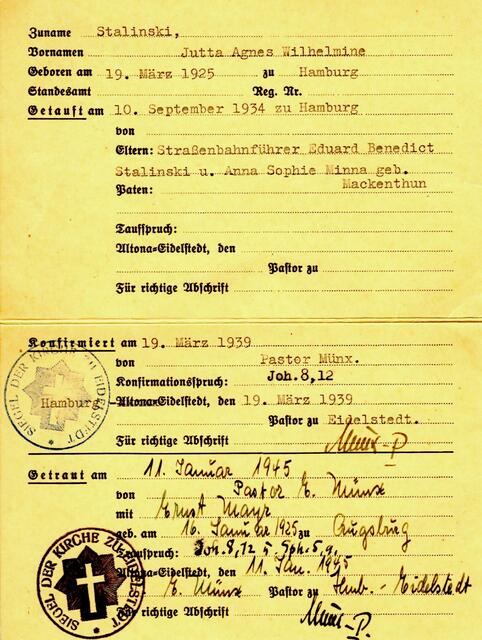 Zuname Stalinski,
Vornamen Jutta Agnes Wilhelmine
Geboren am 19. März 1925 zu Hamburg
Standesamt Reg. Nr.
Getauft am 10. September 1934 zu Hamburg
von
Eltern: Straßenbahnführer Eduard Benedict
Stalinski u. Anna Sophie Minna geb.
Mackenthun
Paten:
Taufspruch:
Altona=Eidelstedt, den
Pastor zu
Für richtige Abschrift
Konfirmiert am 19. März 1939
von Pastor Münx.
Konfirmationsspruch: Joh. 8,12
Hamburg - Altona=Eidelstedt, den 19. März 1939
Pastor zu Eidelstedt.
Für richtige Abschrift Münx-P
SIEGEL DER KIRCHE ZU EIDELSTEDT
Getraut am 11. Januar 1945
von Pastor E. Münx
mit Ernst Mayr
geb. am 16. Januar 1925 zu Augsburg
Trauspruch: Joh. 8,12 Eph. 5, 9
Altona=Eidelstedt, den 11. Jan. 1945
E. Münx Pastor zu Hmb. - Eidelstedt
Für richtige Abschrift Münx-P.
SIEGEL DER KIRCHE ZU EIDELSTEDT